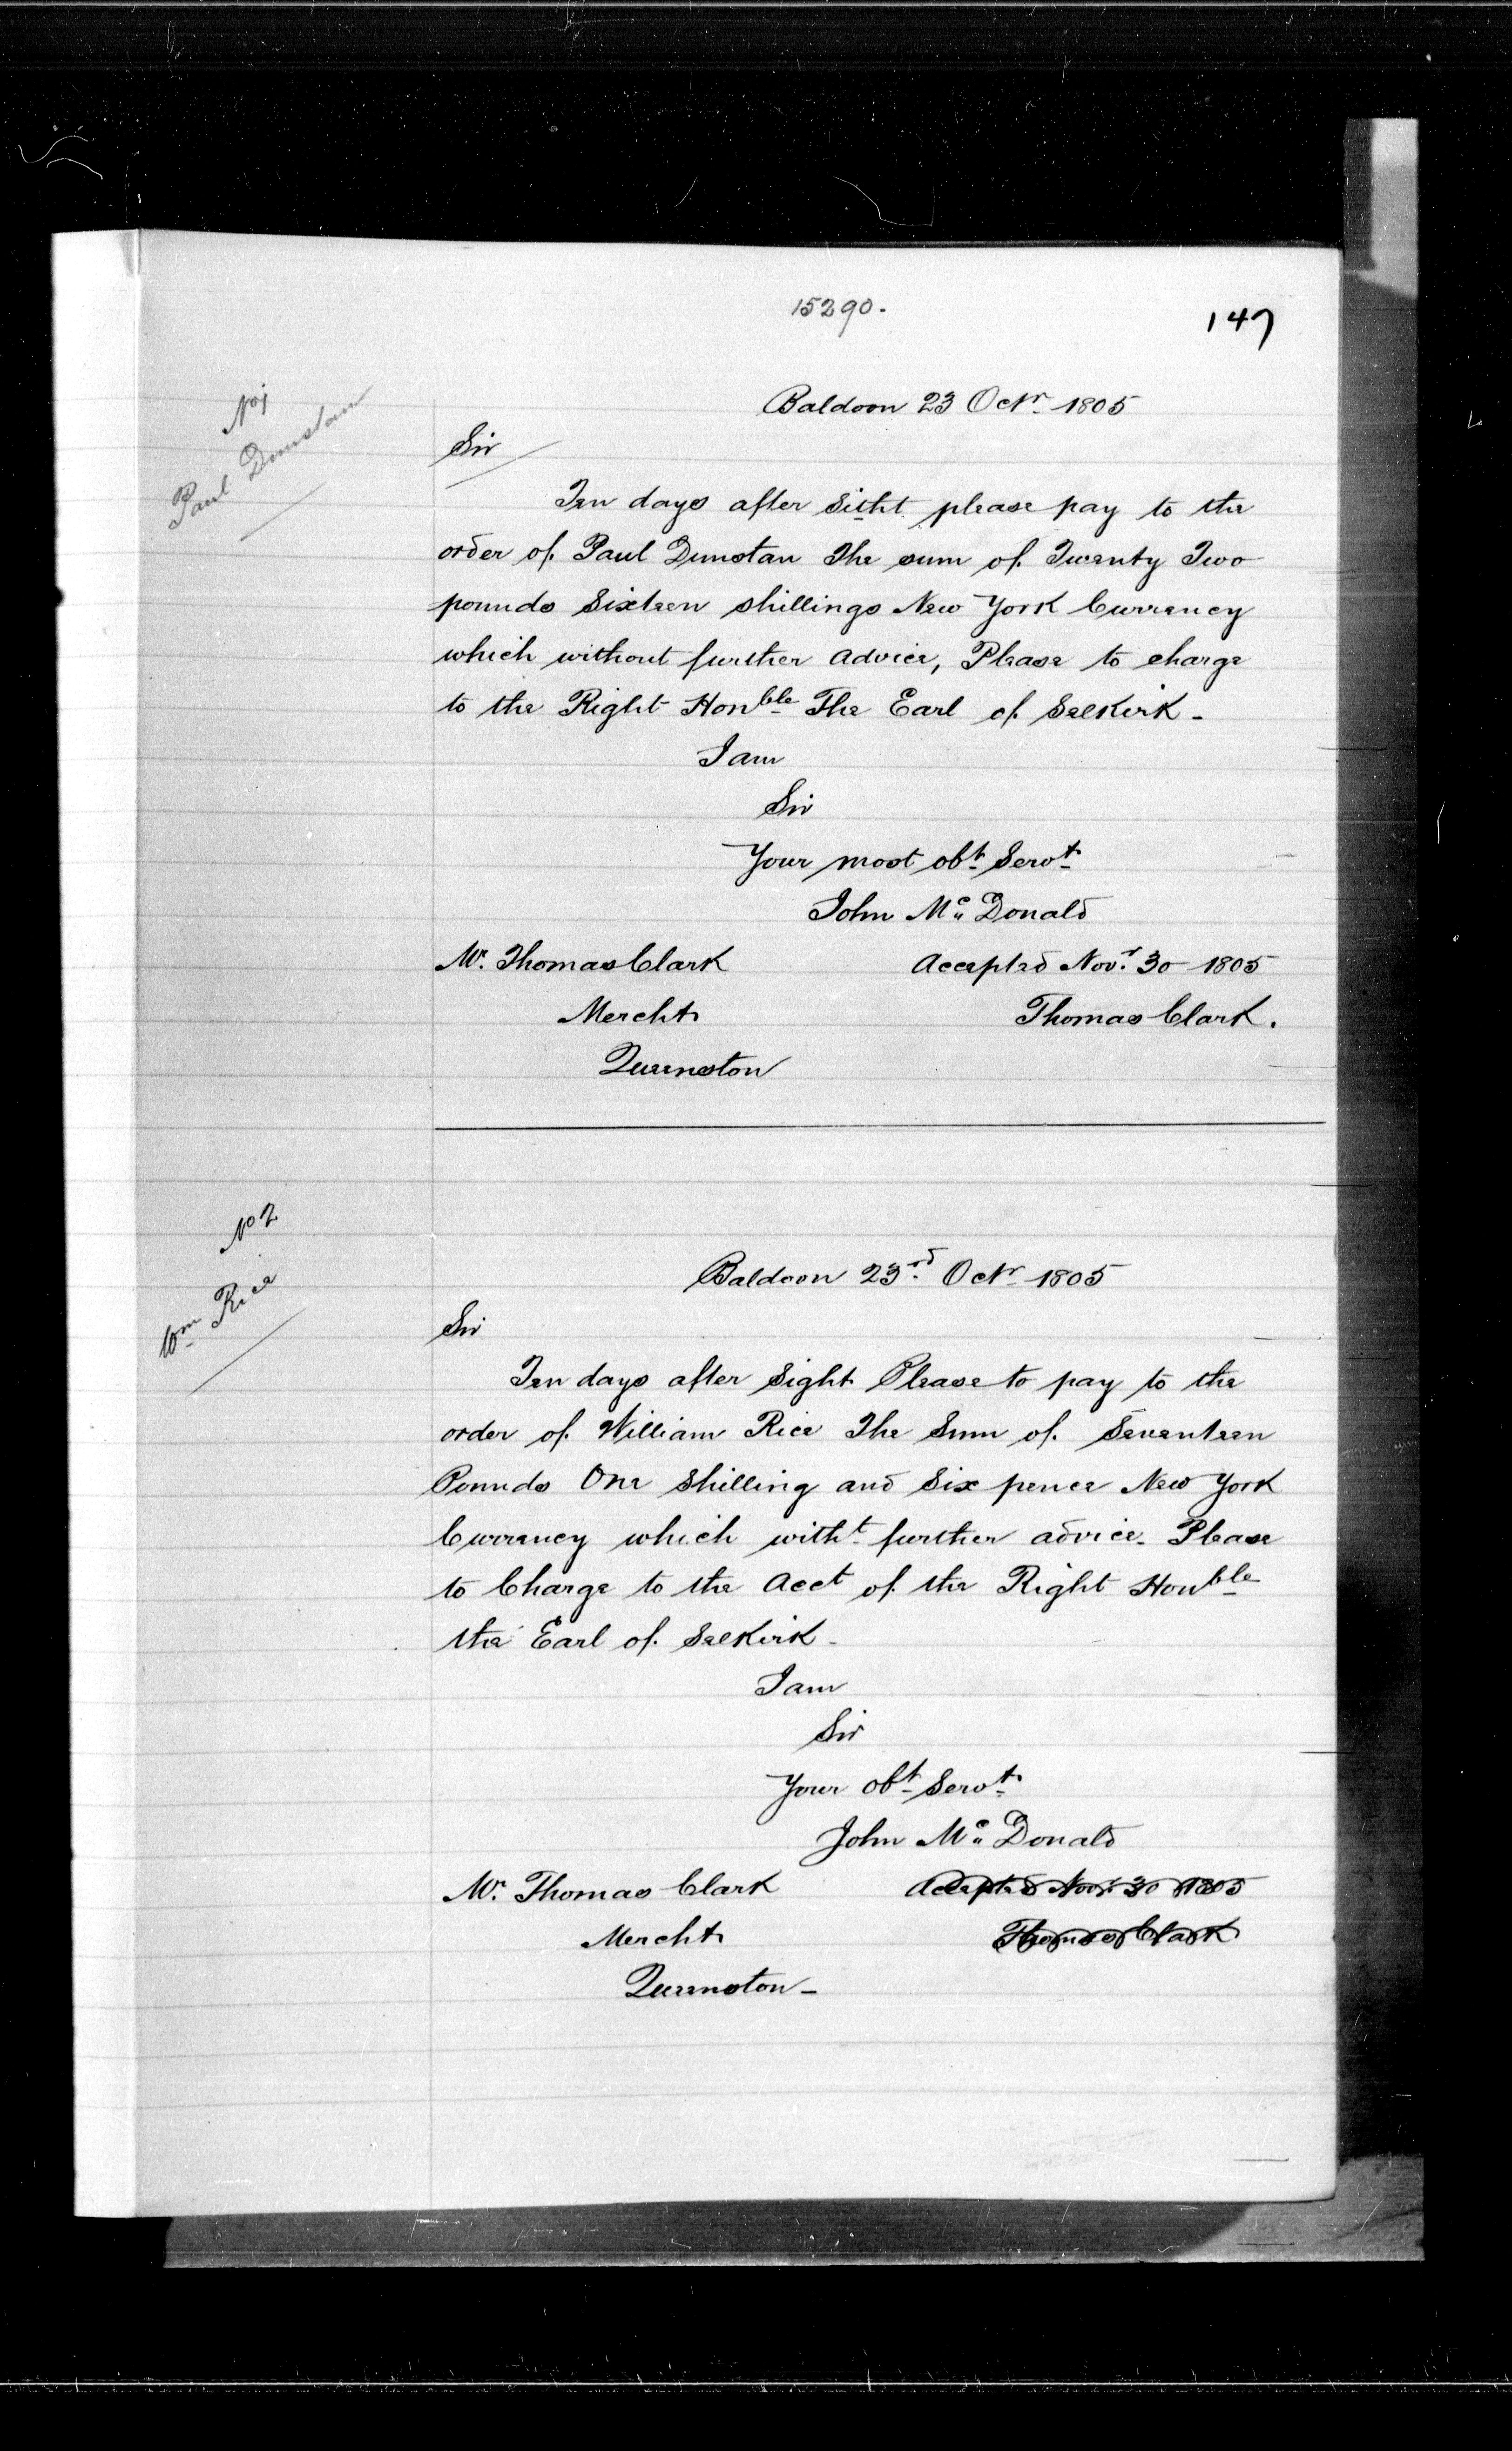 15290.
147
No 1
Paul Dunstan
Baldoon 23 Octr 1805
Sir
Ten days after Sitht please pay to the
order of Paul Dunstan The sum of Twenty Two
pounds Sixteen shillings New York Currency
which without further advice, Please to charge
to the Right Honble The Earl of Selkirk -
I am
Sir
Your most obt Servt
John Mc Donald
Mr. Thomas Clark
Accepted Novr 30 1805
Mercht
Thomas Clark.
Queenston
No 2
Wm Rice
Baldoon 23rd Octr 1805
Sir
Ten days after Sight Please to pay to the
order of William Rice The Sum of Seventeen
Pounds One Shilling and Six pence New York
Currency which witht further advice. Please
to Charge to the Acct of the Right Honble
the Earl of Selkirk -
I am
Sir
Your obt Servt
John Mc Donald
Mr. Thomas Clark
Accepted Novr 30 1805
Mercht
Thomas Clark
Queenston -